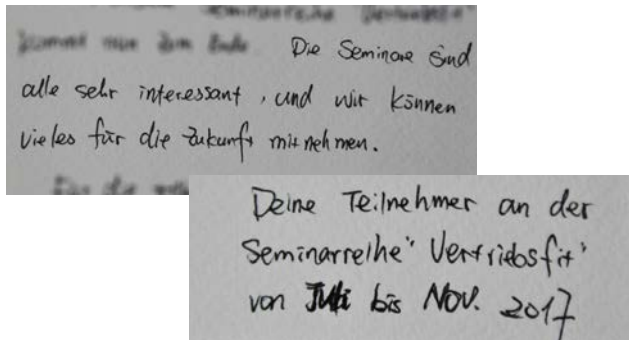 Seminarreihe
kommt nun zum Ende. Die Seminare sind
alle sehr interessant, und wir können
vieles für die Zukunft mitnehmen.
Für die
Deine Teilnehmer an der
Seminarreihe "Vertriebsfit"
von Juli bis Nov. 2017